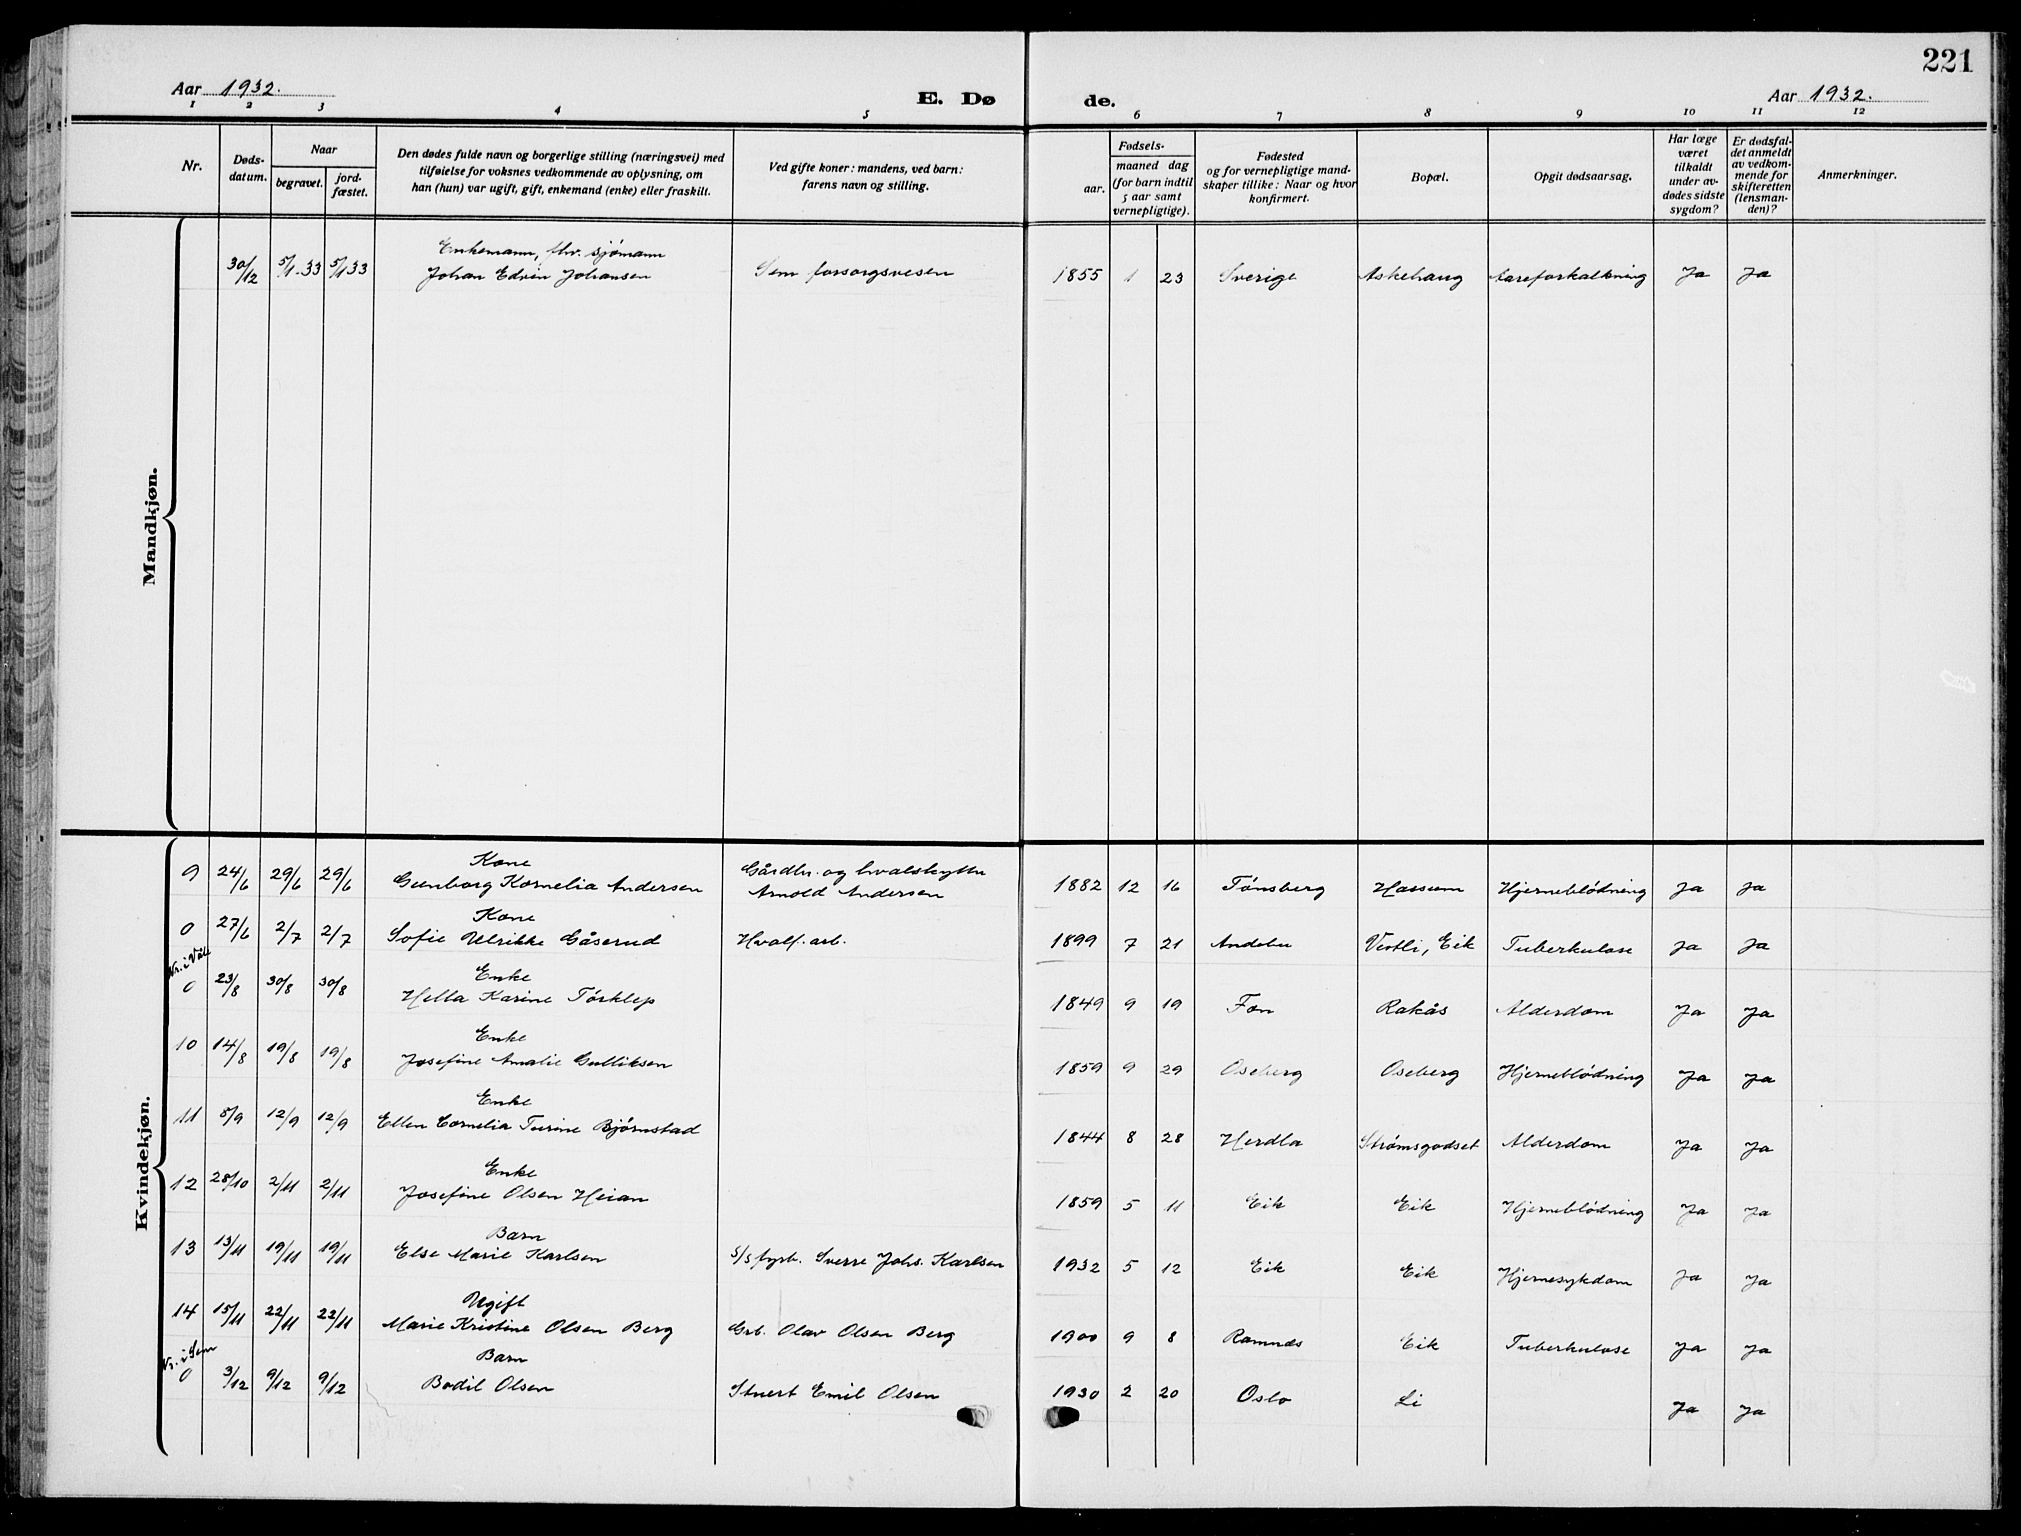 221
Aar 1932.
E. Dø de.
Aar 1932.
1 2 3 4 5 6 7 8 9 10 11 12
Nr.
Døds-
datum.
Naar
begravet.
jord-
fæstet.
Den dødes fulde navn og borgerlige stilling (næringsvei) med
tilføielse for voksnes vedkommende av oplysning, om
han (hun) var ugift, gift, enkemand (enke) eller fraskilt.
Ved gifte koner: mandens, ved barn:
farens navn og stilling.
Fødsels-
aar.
maaned dag
(for barn indtil
5 aar samt
vernepligtige).
Fødested
og for vernepligtige mand-
skaper tillike: Naar og hvor
konfirmert.
Bopæl.
Opgit dødsaarsag.
Har læge
været
tilkaldt
under av-
dødes sidste
sygdom?
Er dødsfal-
det anmeldt
av vedkom-
mende for
skifteretten
(lensman-
den)?
Anmerkninger.
Mandkjøn.
Enkemann, fhv. sjømann
30/12 5/1-33 5/1 33 Johan Edvin Johansen Sem forsorgsvesen 1855 1 23 Sverige Askehaug Aareforkalkning Ja Ja
Kvindekjøn.
Kone Gårdbr. og hvalskytter
9 24/6 29/6 29/6 Gunborg Kornelia Andersen Arnold Andersen 1882 12 16 Tønsberg Hassum Hjerneblødning Ja Ja
Kone
0 27/6 2/7 2/7 Sofie Ulrikke Gåserud Hvalf. arb. 1899 7 21 Andebu Vestli, Eik Tuberkulose Ja Ja
Nr. i Våle Enke
0 23/8 30/8 30/8 Hella Karine Tørklep 1849 9 19 Fon Rakås Alderdom Ja Ja
Enke
10 14/8 19/8 19/8 Josefine Amalie Gulliksen 1859 9 29 Oseberg Oseberg Hjerneblødning Ja Ja
Enke
11 8/9 12/9 12/9 Ellen Cornelia Turine Bjørnstad 1844 8 28 Herdla Strømsgodset Alderdom Ja Ja
Enke
12 28/10 2/11 2/11 Josefine Olsen Heian 1859 5 11 Eik Eik Hjerneblødning Ja Ja
Barn
13 13/11 19/11 19/11 Else Marie Karlsen S/S fyrb. Sverre Johs. Karlsen 1932 5 12 Eik Eik Hjernesykdom Ja Ja
Ugift
14 15/11 22/11 22/11 Marie Kristine Olsen Berg Grb. Olav Olsen Berg 1900 9 8 Ramnes Eik Tuberkulose Ja Ja
Nr. i Sem Barn
0 3/12 9/12 9/12 Bodil Olsen Stuert Emil Olsen 1930 2 20 Oslo Li Ja Ja